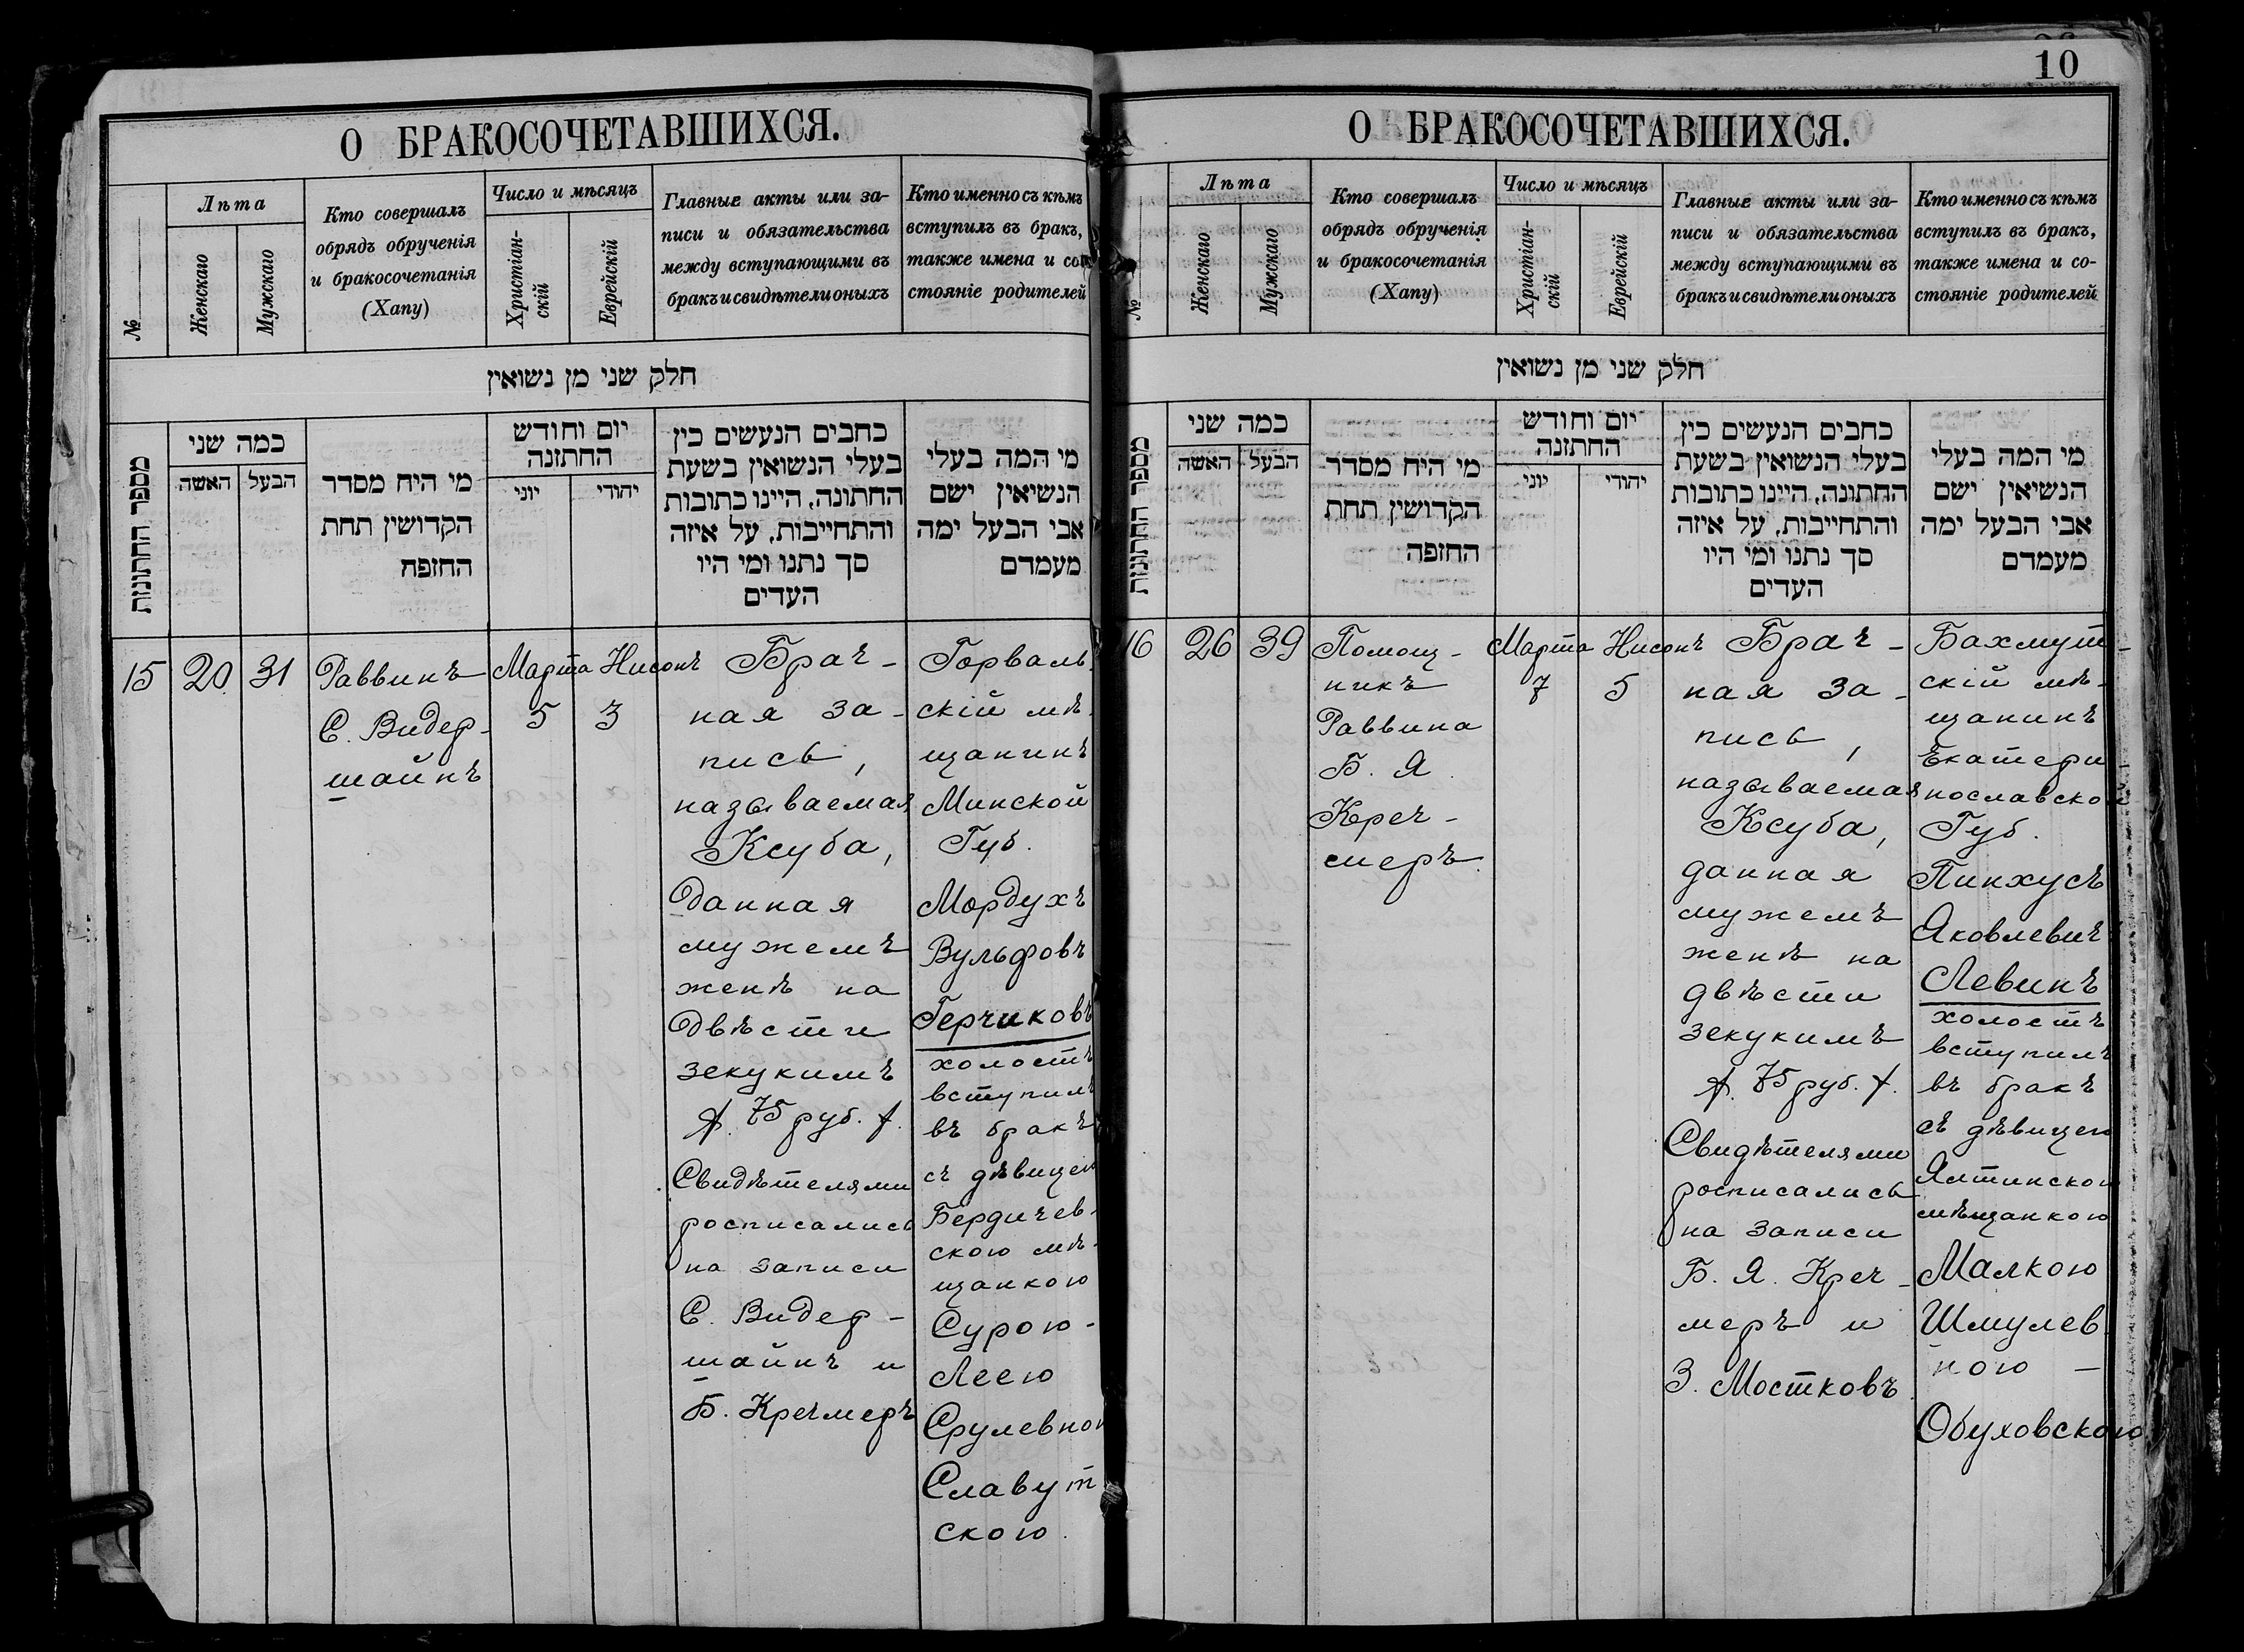 10
О БРАКОСОЧЕТАВШИХСЯ.
№
Лѣта
Женскаго
Мужскаго
Кто совершалъ
обрядъ обрученія
и бракосочетанія
(Хапу)
Число и мѣсяцъ
Христіан-
скій
Еврейскій
Главные акты или за-
писи и обязательства
между вступающими въ
бракъ и свидѣтели оныхъ
Кто именно съ кѣмъ
вступилъ въ бракъ,
также имена и со-
стояніе родителей
חלק שני מן נשואין
מספר החתונות
כמה שני
האשה
הבעל
מי היח מסדר
הקדושין תחת
החזפח
יום וחודש
החתזנה
יוני
יהודי
כחבים הנעשים כין
בעלי הנשואין בשעת
החתונה, היינו כתובות
והתחייבות, על איזה
סך נתנו ומי היו
העדים
מי המה בעלי
הנשיאין ישם
אבי הבעל ימה
מעמדם
15
20
31
Раввинъ
С. Видер-
шайнъ
Марта
5
Нисонъ
3
Брач-
ная за-
пись,
называемая
Ксуба,
данная
мужемъ
женѣ на
двѣсти
зекукимъ
75 руб.
Свидѣтелями
росписались
на записи
С. Видер-
шайнъ и
Б. Кречмеръ
Горваль-
скій мѣ-
щанинъ
Минской
Губ.
Мордухъ
Вульфовъ
Герчиковъ
холостъ
вступилъ
въ бракъ
съ дѣвицею
Бердичев-
скою мѣ-
щанкою
Сурою-
Леею
Срулевною
Славут
скою.
О БРАКОСОЧЕТАВШИХСЯ.
№
Лѣта
Женскаго
Мужскаго
Кто совершалъ
обрядъ обрученія
и бракосочетанія
(Хапу)
Число и мѣсяцъ
Христіан-
скій
Еврейскій
Главные акты или за-
писи и обязательства
между вступающими въ
бракъ и свидѣтели оныхъ
Кто именно съ кѣмъ
вступилъ въ бракъ,
также имена и со-
стояніе родителей
חלק שני מן נשואין
מספר החתונות
כמה שני
האשה
הבעל
מי היח מסדר
הקדושין תחת
החזפה
יום וחודש
החתזנה
יוני
יהודי
כחבים הנעשים כין
בעלי הנשואין בשעת
החתונה, היינו כתובות
והתחייבות, על איזה
סך נתנו ומי היו
העדים
מי המה בעלי
הנשיאין ישם
אבי הבעל ימה
מעמדם
16
26
39
Помощ-
никъ
Раввина
Б. Я.
Креч-
меръ
Марта
7
Нисонъ
5
Брач-
ная за-
пись,
называемая
Ксуба,
данная
мужемъ
женѣ на
двѣсти
зекукимъ
75 руб.
Свидѣтелями
росписались
на записи
Б. Я. Креч-
меръ и
З. Мостковъ.
Бахмут-
скій мѣ-
щанинъ
Екатери
нославской
Губ.
Пинхусъ
Яковлевичъ
Левинъ
холостъ
вступилъ
въ бракъ
съ дѣвицею
Ялтинскою
мѣщанкою
Малкою
Шмулев
ною —
Обуховскою